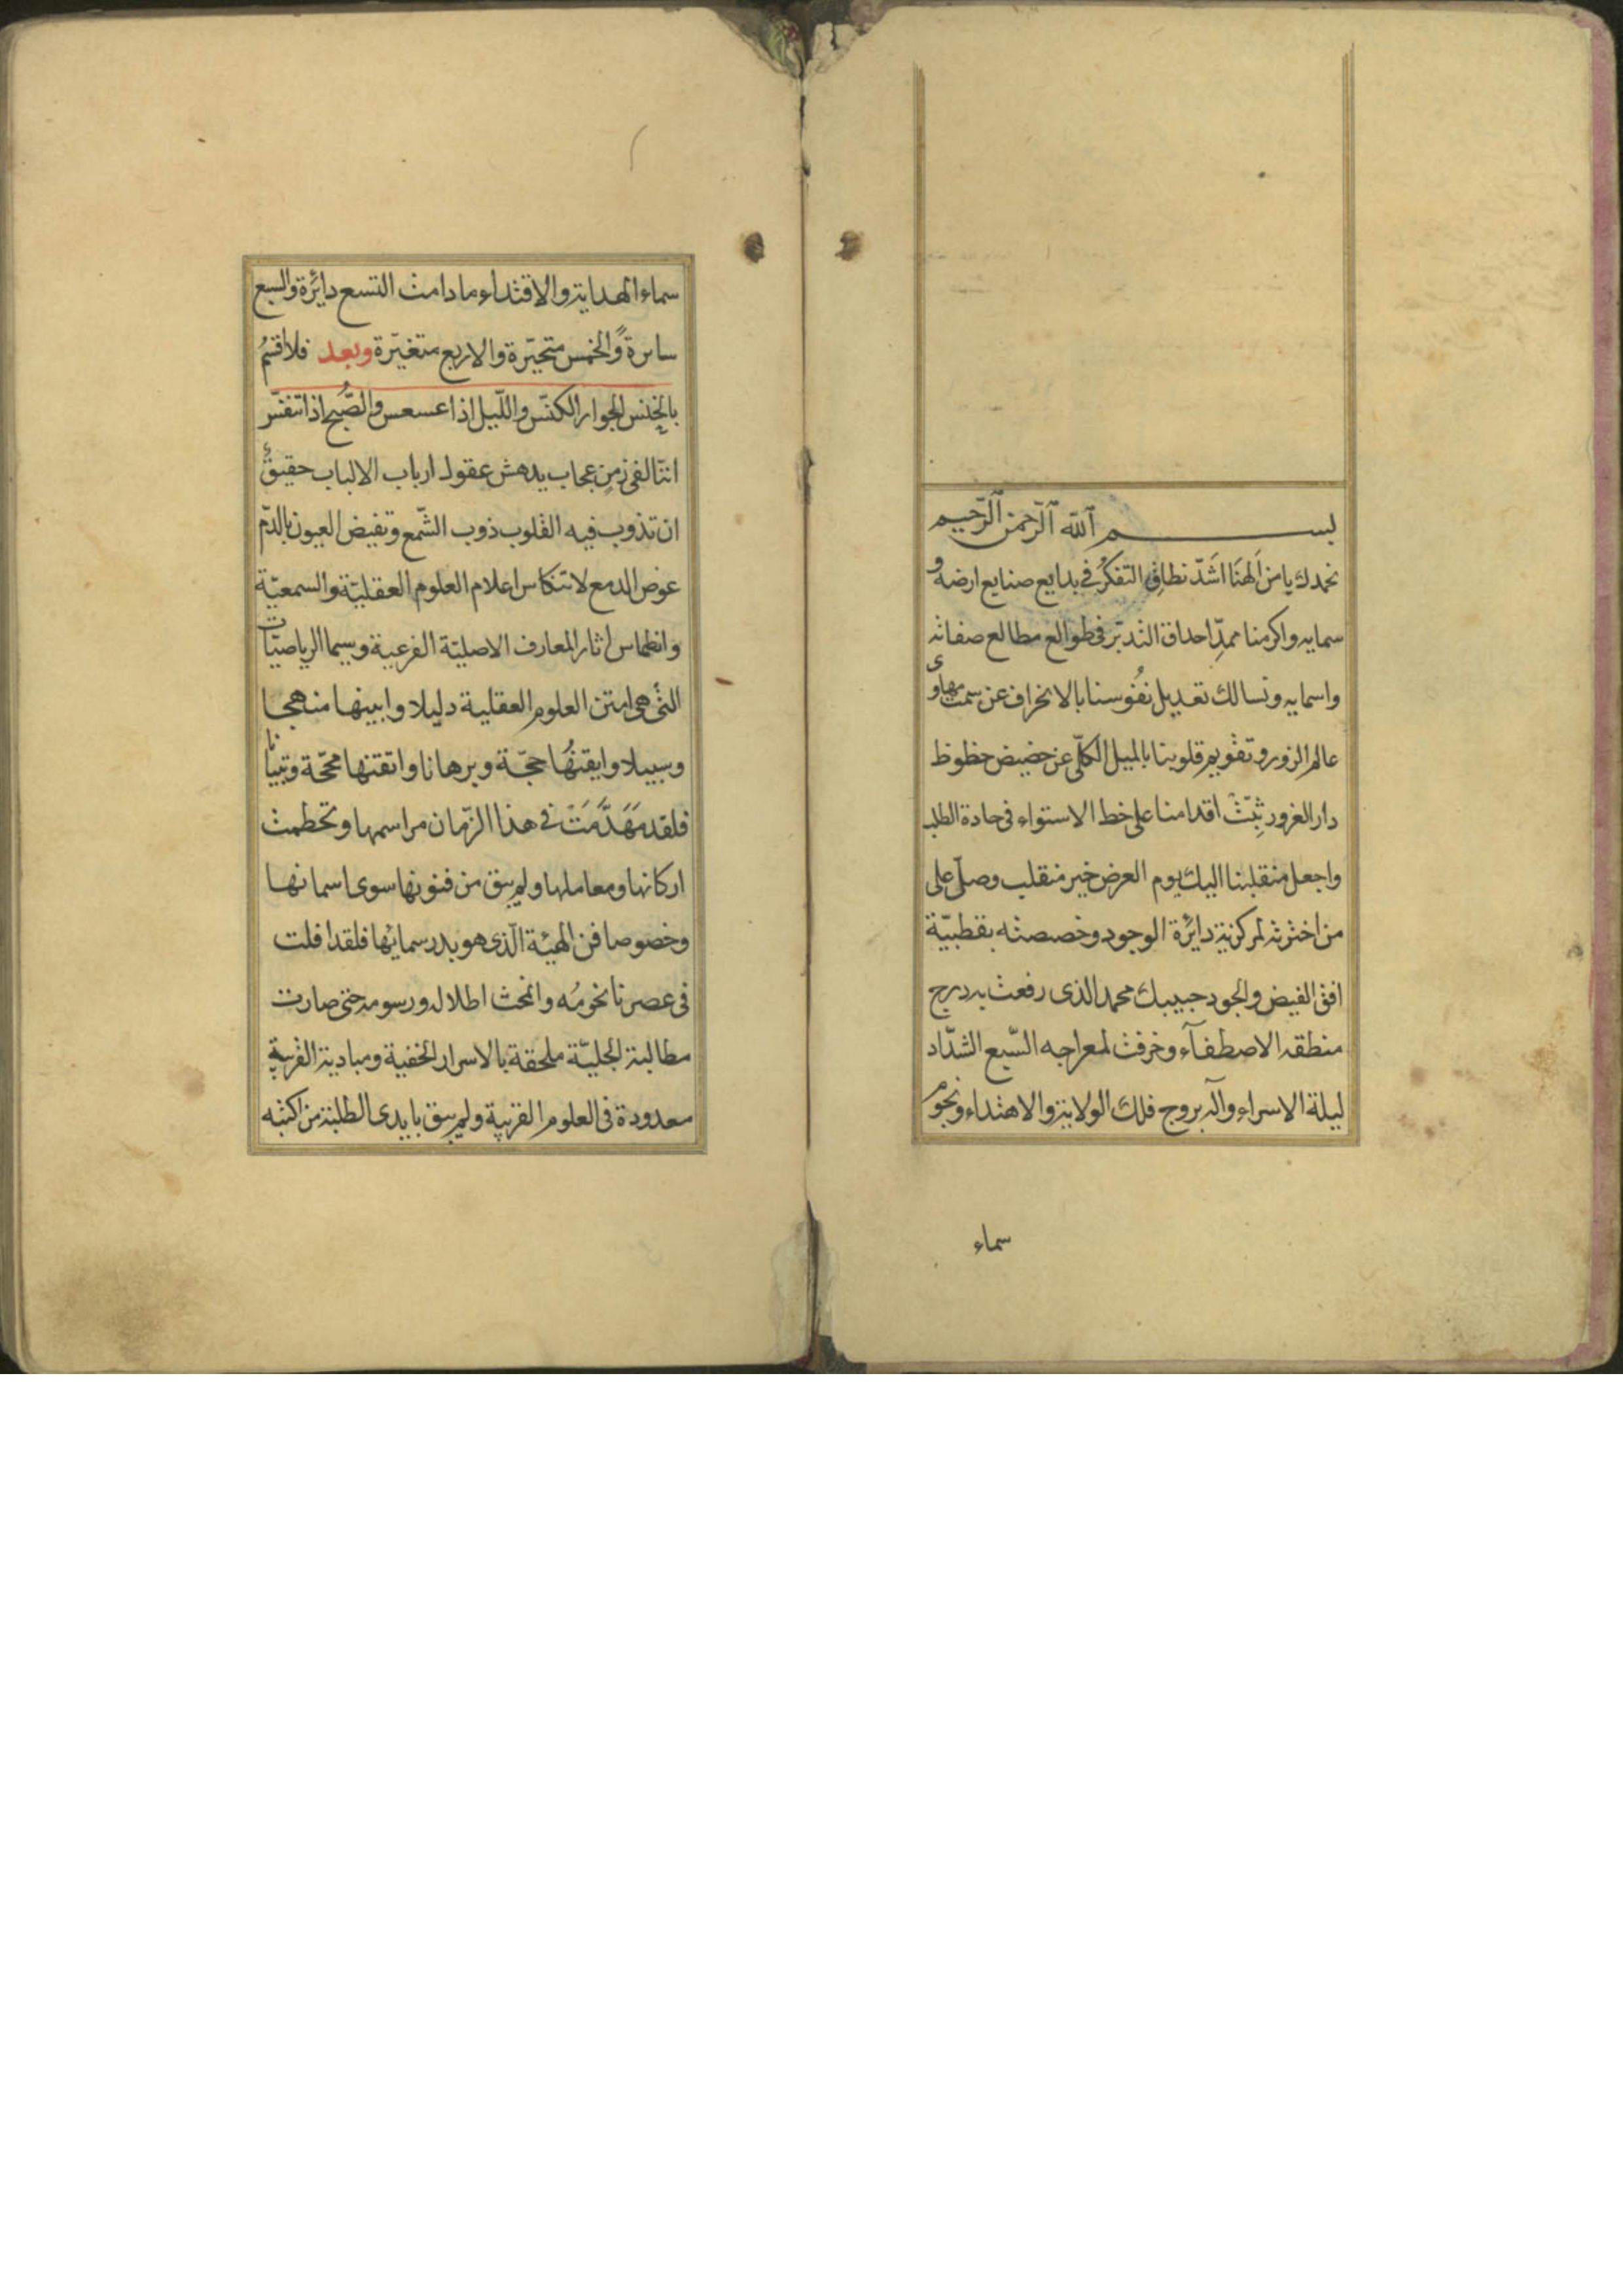 بسم الله الرحمن الرحيم
نحمدك يا من الهنا اشد نطاق التفكر في بدايع صنايع ارضه و
سمايه واكرمنا بمد احداق التدبر في طوالع مطالع صفاته
واسمايه ونسالك تعديل نفوسنا بالانحراف عن سمت مهاوى
عالم الزور وتقويم قلوبنا بالميل الكلى عن حضيض حظوظ
دار الغرور ثبت اقدامنا على خط الاستواء فى جادة الطلب
واجعل منقلبنا اليك يوم العرض خير منقلب وصل على
من اخترته لمركزية دايرة الوجود وخصصته بقطبية
افق الفيض والجود حبيبك محمد الذى رفعت به درج
منطقه الاصطفآء وخرقت لمعراجه السبع الشداد
ليلة الاسراء وآله بروج فلك الولاية والاهتداء ونجوم
سماء
سماء الهداية والاقتداء مادامت التسع دايرة والسبع
سايرة والخمس متحيرة والاربع متغيرة وبعد فلا اقسم
بالخنس الجوار الكنس والليل اذا عسعس والصبح اذا تنفس
اننا لفى زمن عجاب يدهش عقول ارباب الالباب حقيق
ان تذوب فيه القلوب ذوب الشمع وتفيض العيون بالدم
عوض الدمع لانتكاس اعلام العلوم العقلية والسمعية
وانطماس اثار المعارف الاصلية الفرعية وسيما الرياضيات
التى هى امتن العلوم العقلية دليلا وابينها منهجا
وسبيلا وايقنها حجة وبرهانا واتقنها محجة وتبيانا
فلقد مهدمت فى هذا الزمان مراسمها وتحطمت
اركانها ومعاملها ولم يبق من فنونها سوى اسمائها
وخصوصا فن الهيئة الذى هو بدر سمائها فلقد افلت
فى عصرنا نخومه وانمحت اطلاله ورسومه حتى صارت
مطالبة الجلية ملحقة بالاسرار الخفية ومبادية القريبة
معدودة فى العلوم الغريبة ولم يبق بايدى الطلبة من اكتبه